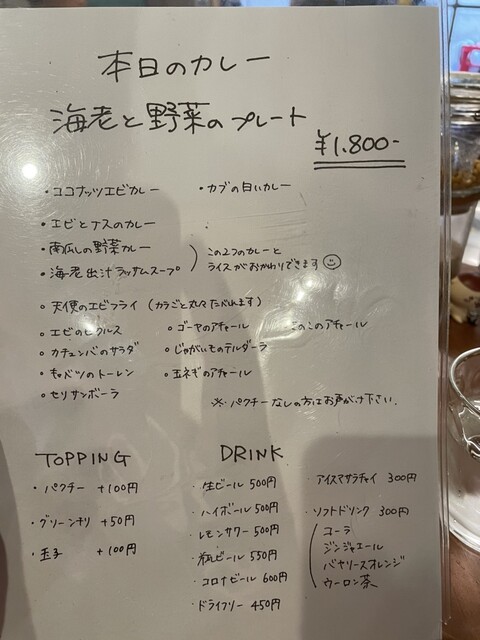 本日のカレー
海老と野菜のプレート
¥1.800-
・ココナッツエビカレー ・カブの白いカレー
・エビとナスのカレー
・南瓜しの野菜カレー
・海老出汁ラッサムスープ
この2つのカレーと
ライスがおかわりできます
○天使のエビフライ (カラごと丸々たべれます)
○エビのピクルス ○ゴーヤのアチャール ○このこのアチャール
○カチュンバのサラダ ○じゃがいものテルダーラ
○キャベツのトーレン ○玉ネギのアチャール
○セリサンボーラ
※パクチーなしの方はお声がけ下さい.
TOPPING
・パクチー +100円
・グリーンチリ +50円
・玉子 +100円
DRINK
・生ビール 500円
・ハイボール 500円
・レモンサワー 500円
・瓶ビール 550円
・コロナビール 600円
・ドライフリー 450円
・アイスマサラチャイ 300円
・ソフトドリンク 300円
コーラ
ジンジャエール
バヤリースオレンジ
ウーロン茶